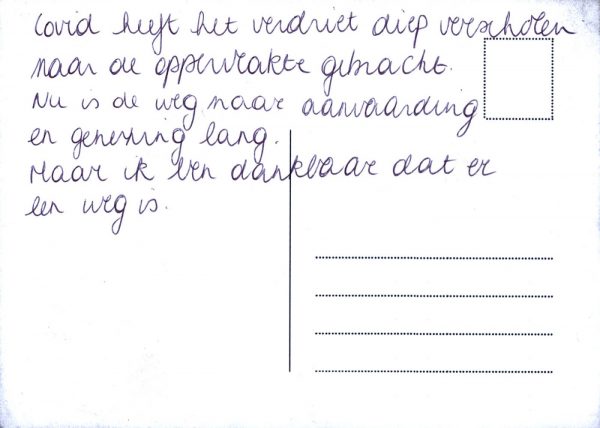 Covid heeft het verdriet diep verscholen
naar de oppervlakte gebracht.
Nu is de weg naar aanvaarding
en genezing lang.
Maar ik ben dankbaar dat er
een weg is.